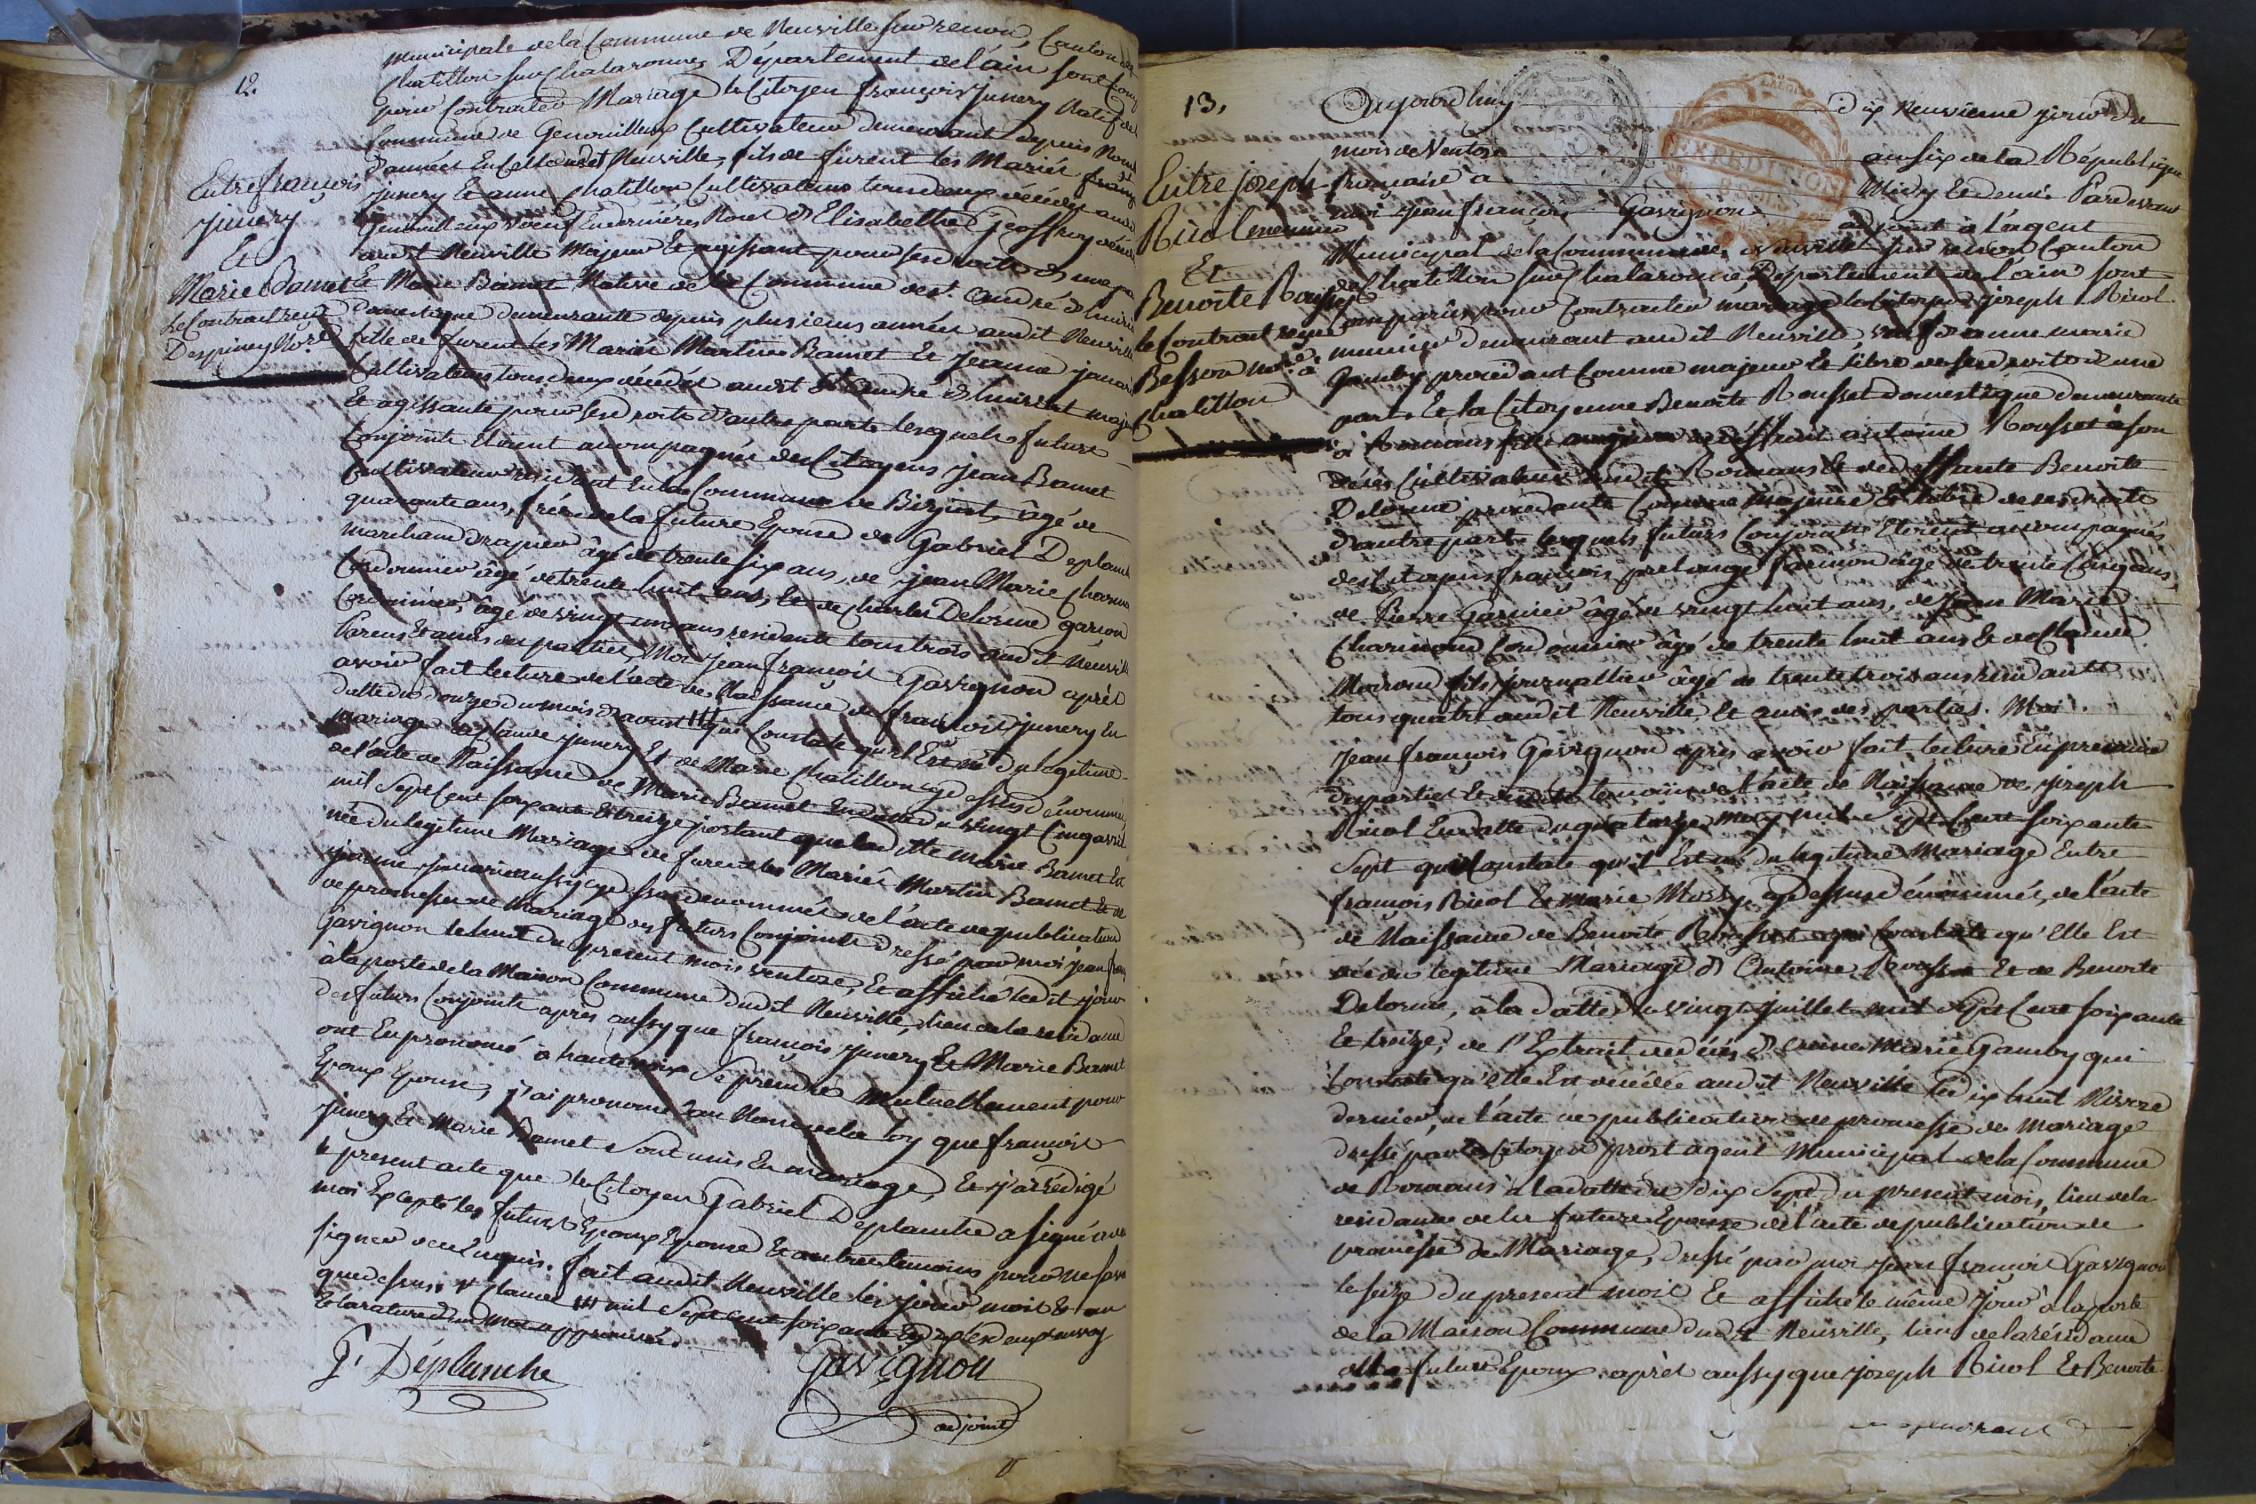 12.
municipale de la Commune de Neuville sur renon, Canton de
Chatillon sur Chalaronne, Département de l'ain sont
pour Contracter Mariage le Citoyen françois junery Natif de
Commune de Genouilleux Cultivateur demeurant depuis
d'années audit Neuville, fils de furent les Mariés
junery Et anne Chatillon Cultivateurs tous deux décédés
Genouilleux veuf En dernières Noces d'Elisabeth Geoffroy
audit Neuville Majeur Et agissant pour ses droits d'une
Et Marie Bamet Native de la Commune de St. andré
domestique demeurante depuis plusieurs années audit Neuville
fille de furent les Mariés Martin Bamet Et jeanne
Cultivateurs tous deux décédés audit St andré
Et agissante pour ses droits d'autre part lesquels futurs
Conjoints Etoient accompagnés des Citoyens jean Bamet
Cultivateur résidant En la Commune de Biziat, âgé de
quarante ans, frère de la future Epouse de Gabriel Deplanche
marchand drapier âgé de trente six ans, de jean Marie
Cordonnier âgé de trente huit ans, Et de Charles Delorme garcon
Cordonnier, âgé de vingt un ans residents tous trois audit Neuville
Parens Et amis des parties, Moi jean françois Gavignon après
avoir fait lecture de l'acte de Naissance de françois junery En
datte du douze du mois d'aoust ttt qui Constate qu'il Est né du légitime
Mariage de Claude junery Et de Marie Chatillon cy dessus dénommés
de l'acte de Naissance de Marie Bamet En date du vingt Cinq avril
mil Sept Cent soixante Et treize portant que la ditte Marie Bamet Est
née du légitime Mariage de furent les Mariés Martin Bamet Et de
jeanne aussy cy dessus denommés de l'acte de publication
de promesses de Mariage des futurs Conjoints dressé par moi jean
Gavignon le huit du present mois ventose, Et affiché ledit jour
à la porte de la Maison Commune dudit Neuville, lieu de la residance
des futurs Conjoints après aussy que françois junery Et Marie Bamet
ont Eu prononcé à haute voix Se prendre Mutuellement pour
Epoux Epouse, j'ai prononcé au Nom de la loy que françois
junery Et Marie Bamet Sont unis En mariage, Et j'ai rédigé
le present acte que le Citoyen Gabriel Deplanche a signé avec
moi Excepté les futurs Epoux Epouse Et autres temoins pour ne savoir
signer de ce Enquis. fait audit Neuville les jour mois Et an
que dessus. Claude ttt mil Sept Cent soixante
Et la rature d'un mot approuvée.
G. Déplanche
Gavignon
adjoint
Entre françois
junery
Et
Marie Bamet
le Contract reçu
Despiney Nore.
13,
Entre joseph
Ricol meunier
Et
Benoite Rousset
le Contrat reçu
Besson nore. à
chatillon
Aujourdhuy dix Neuvieme jour du
mois de Ventose an six de la République
françoise à Midy Et demi Pardevant
moi jean françois Gavignon adjoint à l'agent
Municipal de la Commune de Neuville sur renon Canton
de Chatillon sur Chalaronne, Département de l'ain sont
Comparus pour Contracter mariage le Citoyen joseph Ricol
meunier demeurant audit Neuville veuf d'anne marie
Gamby procédant Comme majeur Et libre de ses droits d'une
part Et la Citoyenne Benoite Rousset domestique demeurante
à Romans fille majeure de deffunt antoine Rousset à son
décès Cultivateur audit Romans Et de deffunte Benoite
Delorme procédante Comme majeure Et libre de ses droits
d'autre part lesquels futurs Conjoints Etoient accompagnés
des Citoyens françois prelonge farinon âgé de trente Cinq ans,
de Pierre Garnier âgé de vingt huit ans, de jean Marie
Charmond Cordonnier âgé de trente huit ans Et de Claude
Moirond fils journallier âgé de trente trois ans residants
tous quatre audit Neuville, Et amis des parties. Moi
jean françois Gavignon après avoir fait lecture En presence
des parties Et dudits temoins de l'acte de Naissance de joseph
Ricol En datte du quatorze may mil Sept Cent soixante
Sept qui Constate qu'il Est né du légitime Mariage Entre
françois Ricol Et marie cy dessus dénommés, de l'acte
de Naissance de Benoite Rousset qui Constate qu'Elle Est
née du légitime Mariage d'Antoine Rousset Et de Benoite
Delorme, à la datte du vingt juillet mil Sept Cent soixante
Et treize, de l'Extrait de décès d'anne Marie Gamby qui
Constate qu'elle Est décédée audit Neuville le dix huit Nivose
dernier, de l'acte de publication de promesse de Mariage
dressé par le Citoyen prost agent Municipal de la Commune
de Romans à la datte du dix Sept du present mois, lieu de la
residance de la future Epouse de l'acte de publication de
promesse de Mariage, dressé par moi jean françois Gavignon
le seize du present mois Et affiché le même jour à la porte
de la Maison Commune dudit Neuville, lieu de la résidance
du futur Epoux. après aussy que joseph Ricol Et Benoite
EXPEDITION